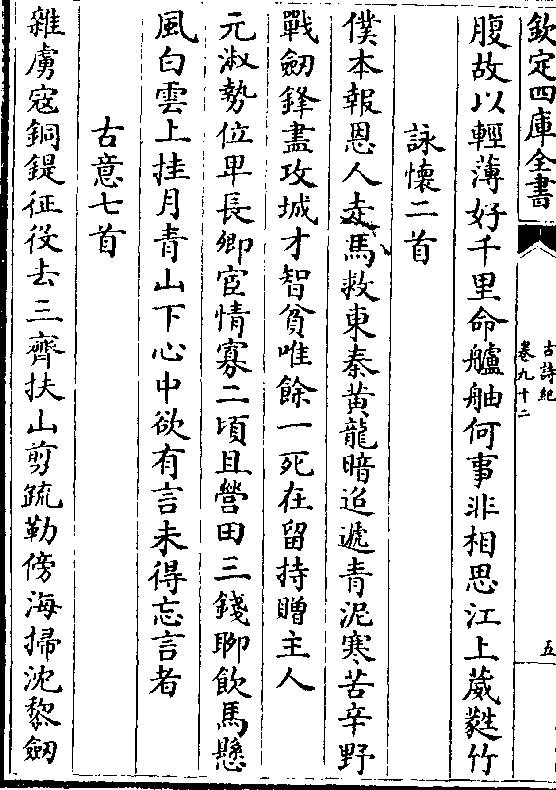 欽定四庫全書
古詩紀
卷九十二
五
腹故以輕薄好千里命艫舳何事非相思江上葳蕤竹
詠懷二首
僕本報恩人走馬救東秦黄龍暗迢遞青泥寒苦辛野
戰劒鋒盡攻城才智貧唯餘一死在留持贈主人
元淑勢位卑長卿宦情寡二頃且營田三錢聊飲馬懸
風白雲上挂月青山下心中欲有言未得忘言者
古意七首
雜虜寇銅鍉征役去三齊扶山剪疏勒傍海掃沈黎劒